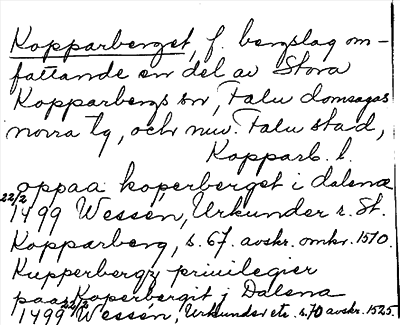 Kopparberget, f. bergslag om-
fattande en del av Stora
Kopparbergs sn, Falu domsagas
norra tg, och nuv. Falu stad,
Kopparb. l.
oppaa koperberget i dalenæ
22/2 1499 Wessén, Urkunder r. St.
Kopparberg, s. 67. avskr. omkr. 1510.
Kupperbergz priuilegier
paa Koperbergit j Dalena
1499 22/2 Wessén, Urkunder etc. s. 70 avskr. 1525.